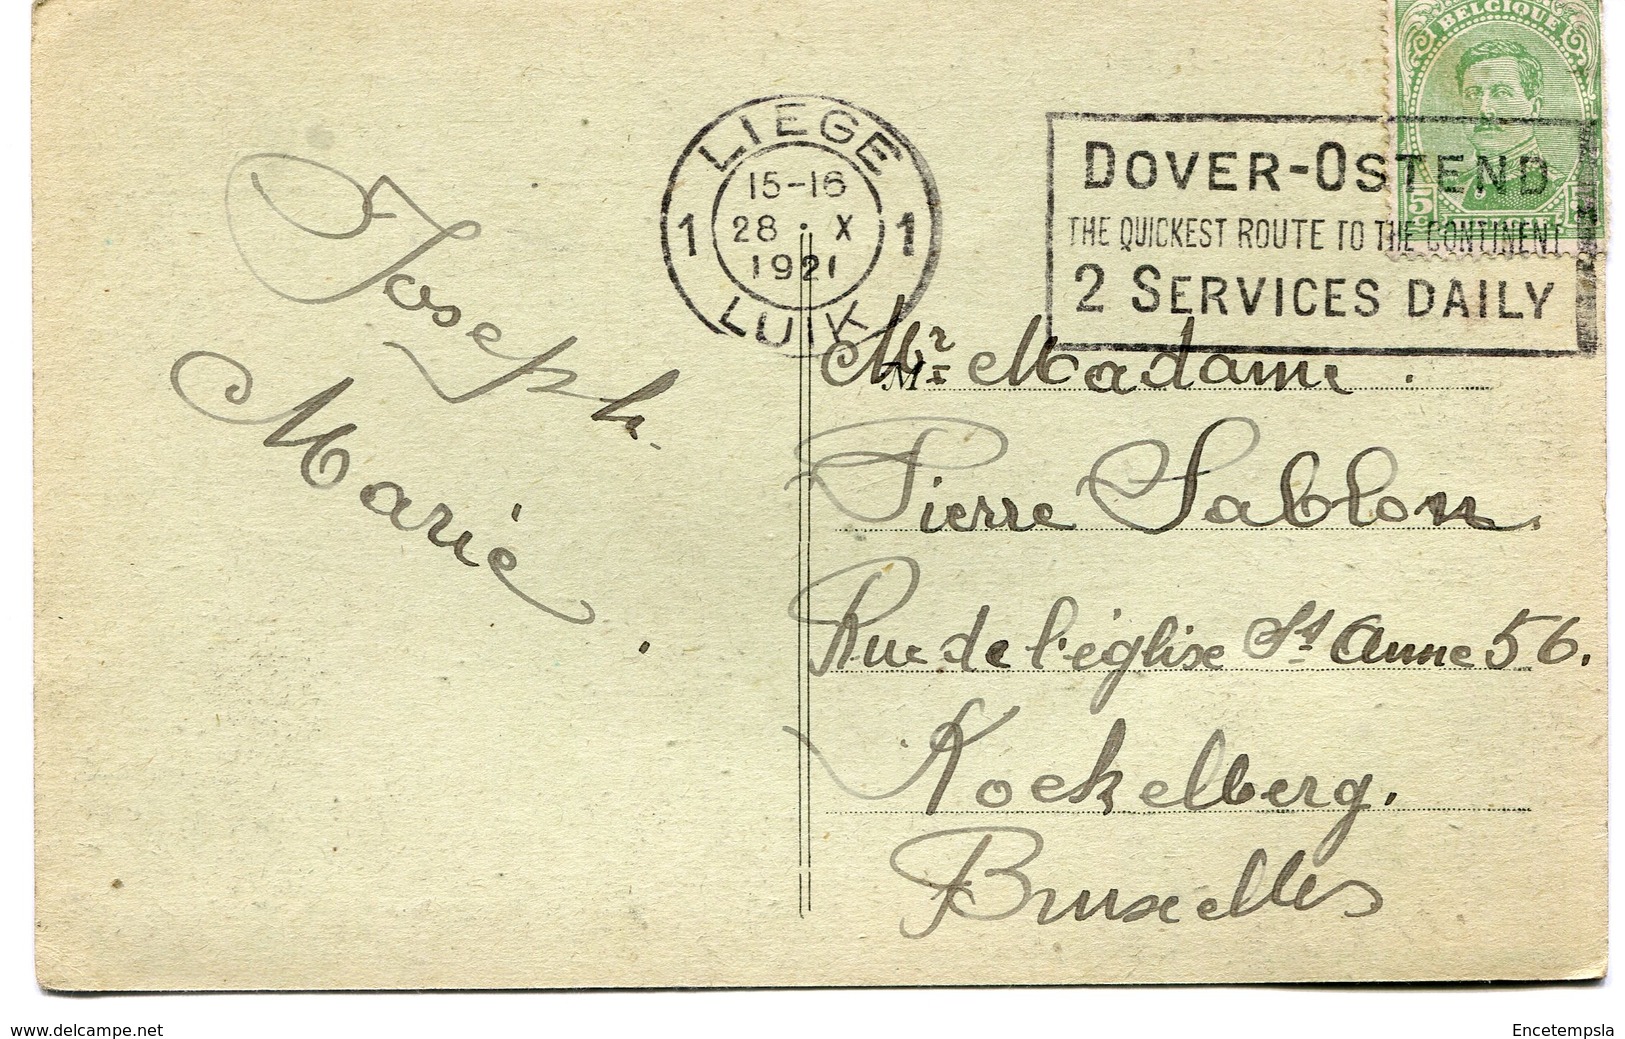 BELGIQUE
5c
LIEGE
15-16
1 28 · X 1
1921
LUIK
DOVER-OSTEND
THE QUICKEST ROUTE TO THE CONTINENT
2 SERVICES DAILY
Joseph.
Marie.
M
Mr. Madame.
Pierre Sablon.
Rue de l'église St Anne 56.
Koekelberg.
Bruxelles
www.delcampe.net
Encetempsla